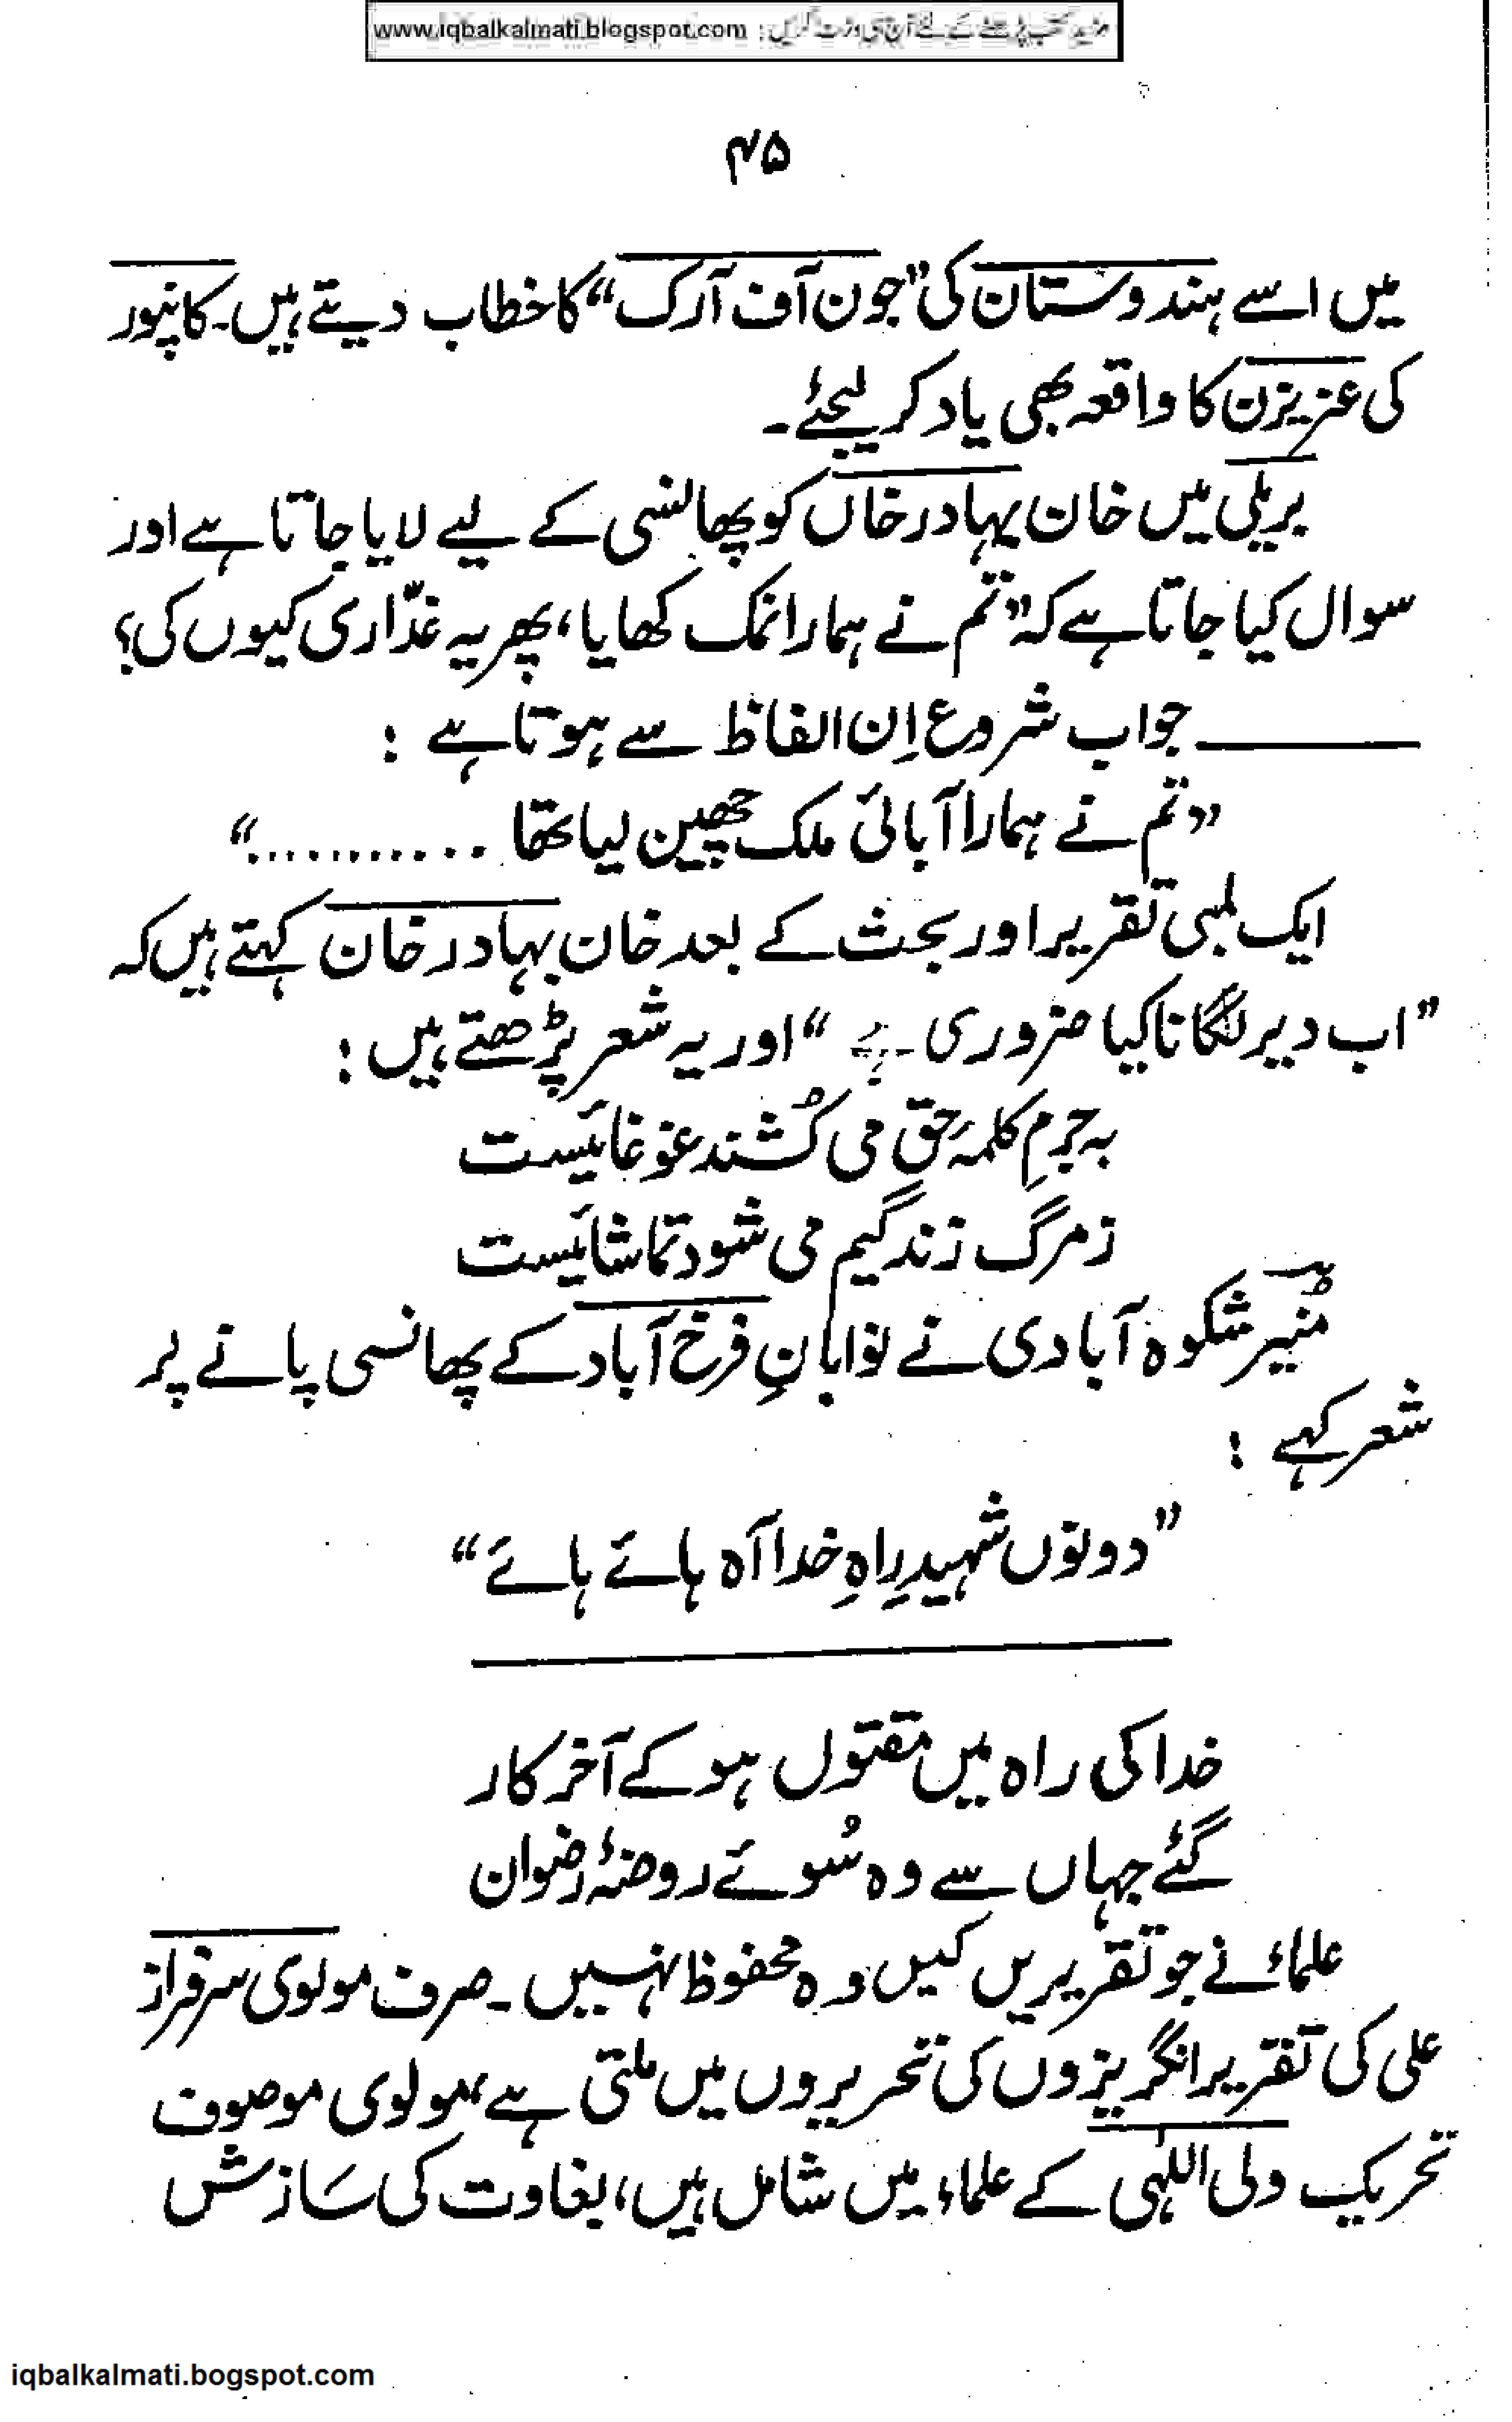 مزید کتب پڑھنے کے لئے آج ہی وزٹ کریں : www.iqbalkalmati.blogspot.com
۴۵
میں اسے ہندوستان کی ”جون آف آرک“ کا خطاب دیتے ہیں۔ کانپور
کی عزیزن کا واقعہ بھی یاد کر لیجئے۔
بریلی میں خان بہادر خاں کو پھانسی کے لیے لایا جاتا ہے اور
سوال کیا جاتا ہے کہ ”تم نے ہمارا نمک کھایا، پھر یہ غدّاری کیوں کی؟
——— جواب شروع اِن الفاظ سے ہوتا ہے :
”تم نے ہمارا آبائی ملک چھین لیا تھا ...........“
ایک لمبی تقریر اور بحث کے بعد خان بہادر خان کہتے ہیں کہ
”اب دیر لگانا کیا ضروری ہے“ اور یہ شعر پڑھتے ہیں :
بہ جرمِ کلمۂ حق می کُشند غوغائیست
ز مرگ زندگیم می شود تماشائیست
منیر شکوہ آبادی نے نوابانِ فرخ آباد کے پھانسی پانے پر
شعر کہے :
”دونوں شہیدِ راہِ خدا آہ ہائے ہائے“
خدا کی راہ میں مقتول ہو کے آخر کار
گئے جہاں سے وہ سُوئے روضۂ رضوان
علماء نے جو تقریریں کیں وہ محفوظ نہیں۔ صرف مولوی سرفراز
علی کی تقریر انگریزوں کی تحریروں میں ملتی ہے، مولوی موصوف
تحریک ولی اللہٰی کے علماء میں شامل ہیں، بغاوت کی سازش
iqbalkalmati.bogspot.com